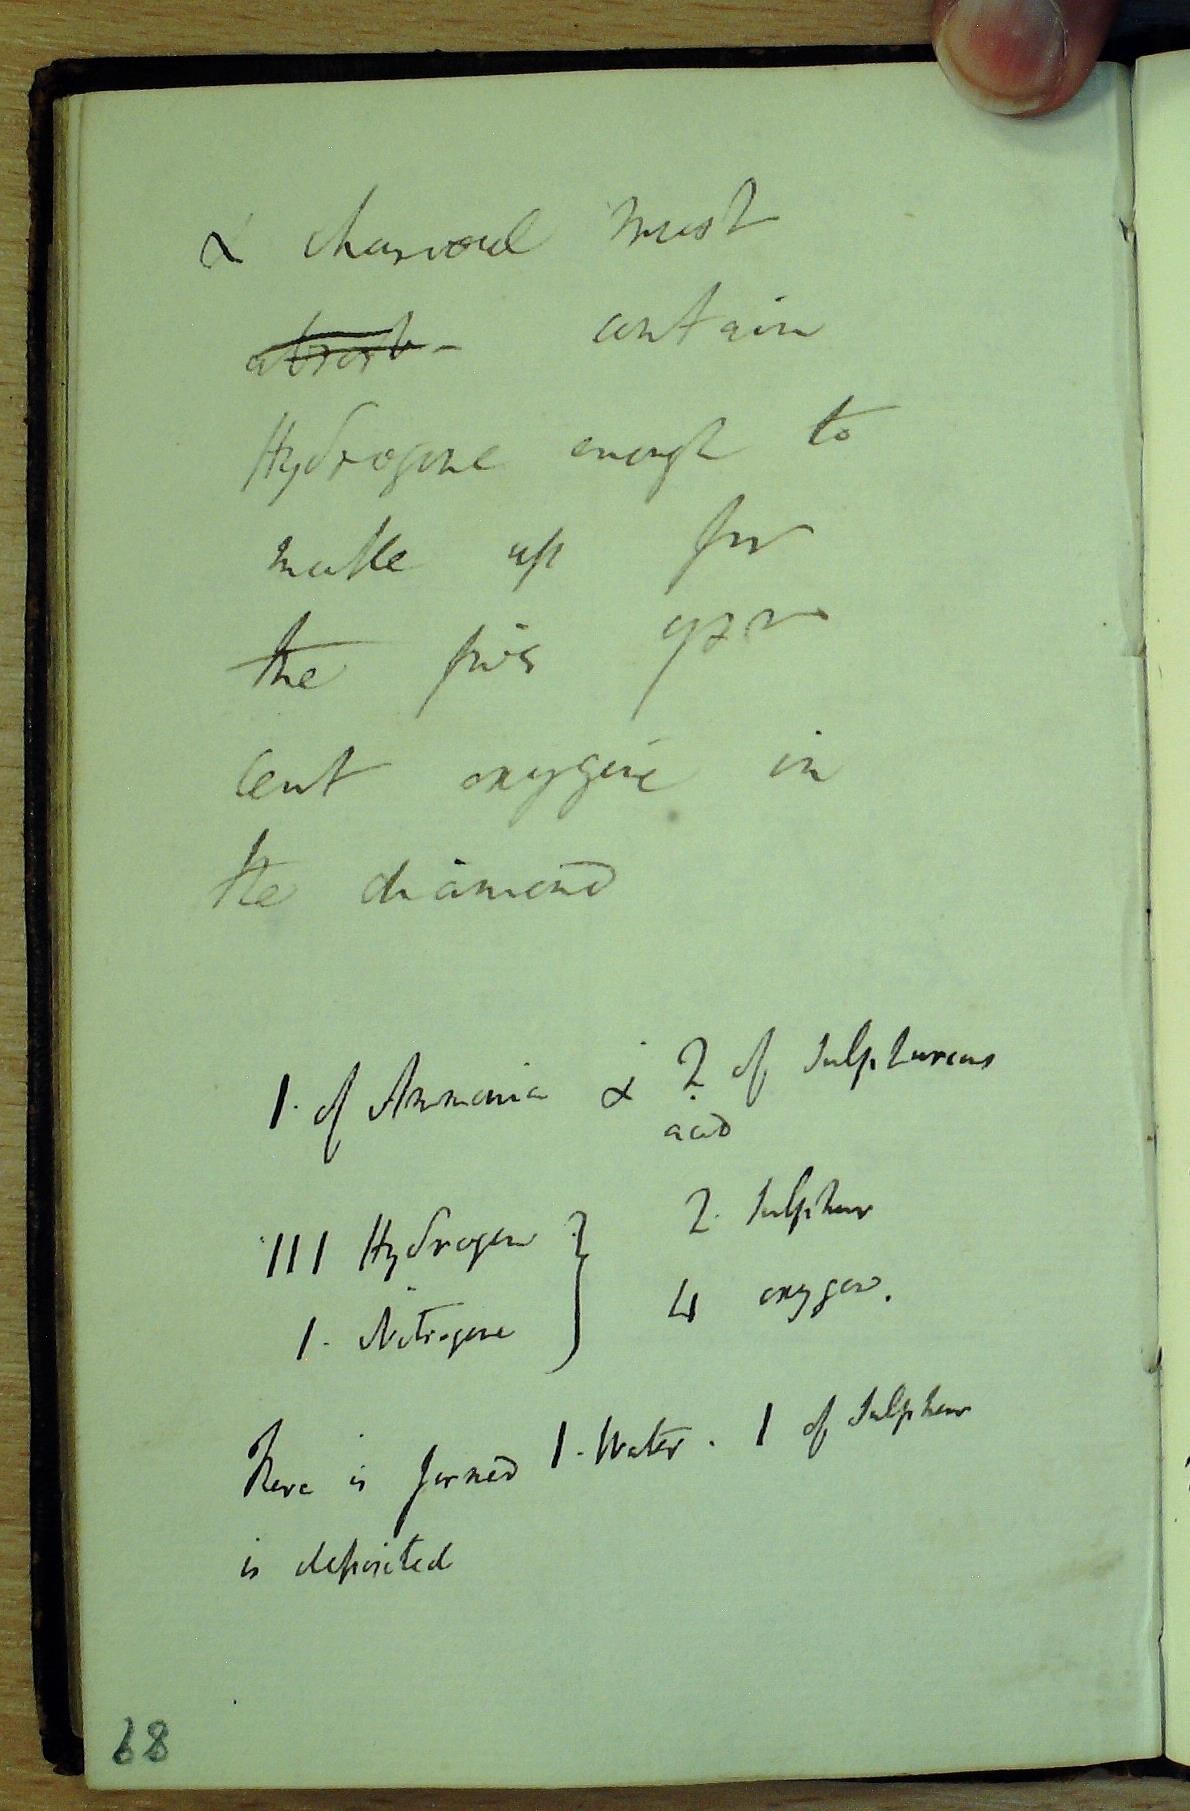 & charcoal must
absorb - contain
Hydrogene enough to
make up for
the
cent oxygene in
the diamond
1. of Ammonia & 2 of Sulphureous
acid
111 Hydrogen } 2. Sulphur
1. Nitrogene } 4 oxygen.
There is formed 1. Water. 1 of Sulphur
is deposited
68